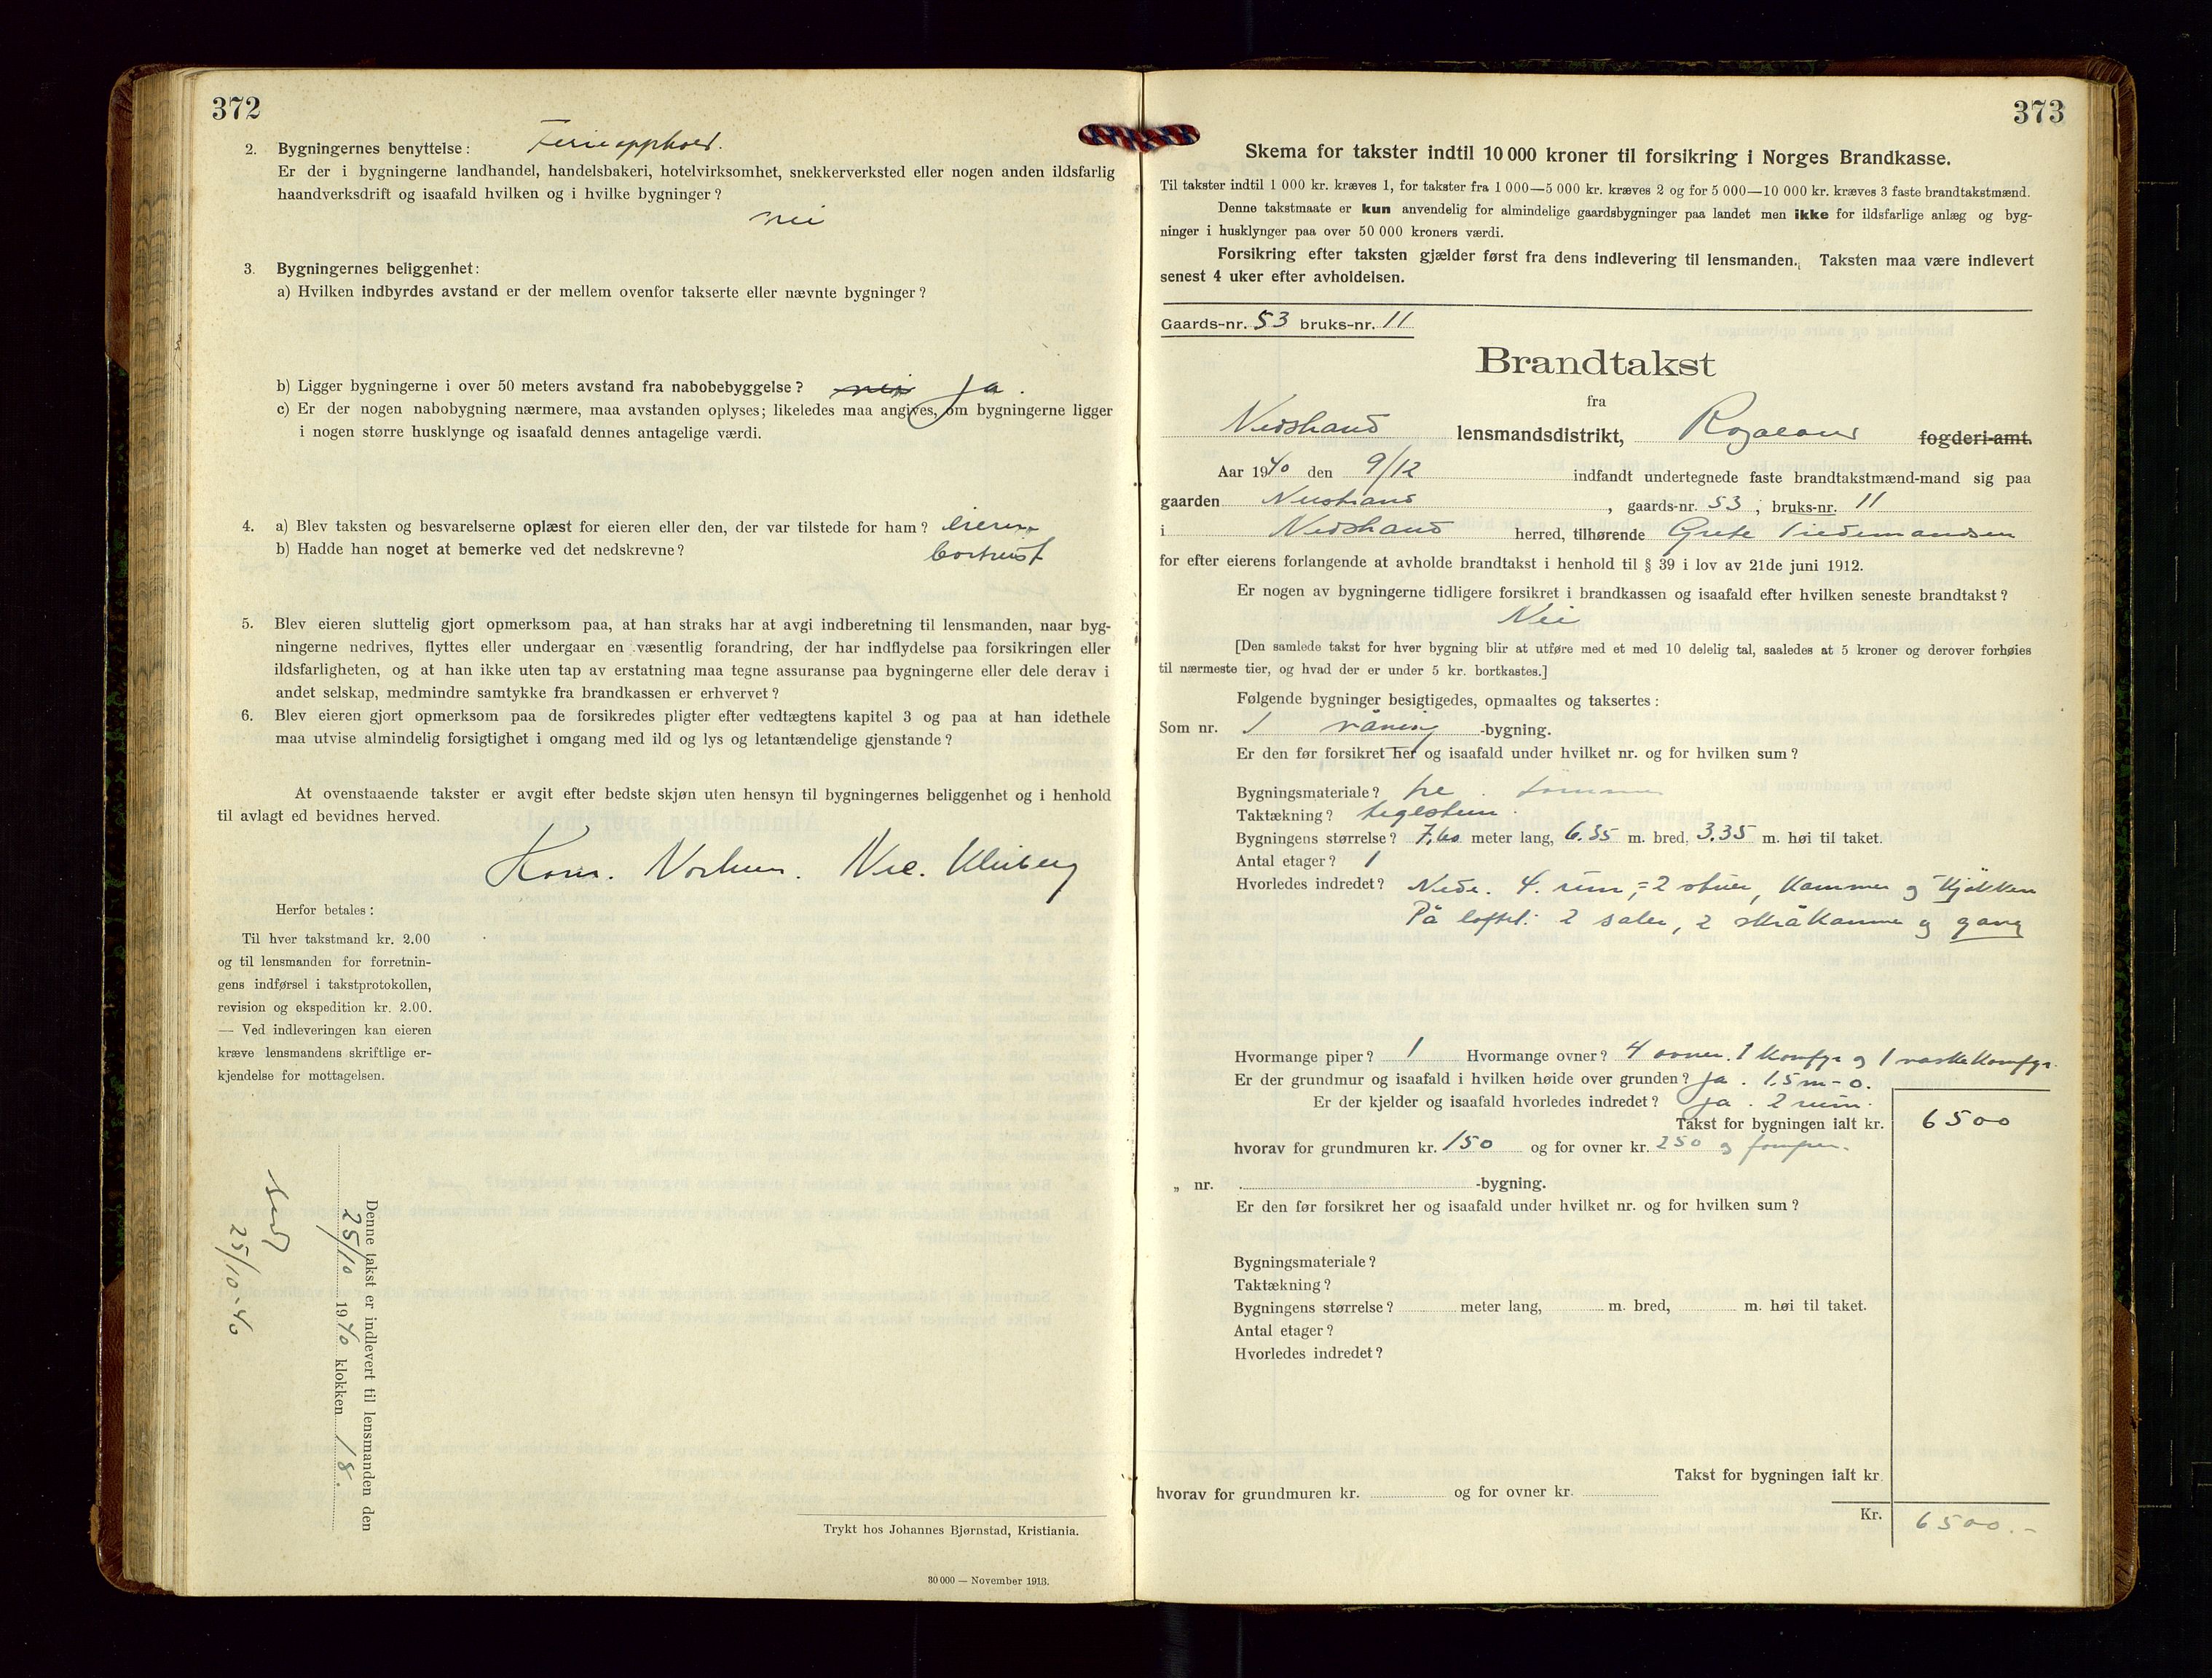 372
2. Bygningernes benyttelse: Ferieopphold.
Er der i bygningerne landhandel, handelsbakeri, hotelvirksomhet, snekkerverksted eller nogen anden ildsfarlig
haandverksdrift og isaafald hvilken og i hvilke bygninger?
nei
3. Bygningernes beliggenhet:
a) Hvilken indbyrdes avstand er der mellem ovenfor takserte eller nævnte bygninger?
b) Ligger bygningerne i over 50 meters avstand fra nabobebyggelse? nei Ja.
c) Er der nogen nabobygning nærmere, maa avstanden oplyses; likeledes maa angives, om bygningerne ligger
i nogen større husklynge og isaafald dennes antagelige værdi.
4. a) Blev taksten og besvarelserne oplæst for eieren eller den, der var tilstede for ham? eieren
b) Hadde han noget at bemerke ved det nedskrevne? bortreist
5. Blev eieren sluttelig gjort opmerksom paa, at han straks har at avgi indberetning til lensmanden, naar byg-
ningerne nedrives, flyttes eller undergaar en væsentlig forandring, der har indflydelse paa forsikringen eller
ildsfarligheten, og at han ikke uten tap av erstatning maa tegne assuranse paa bygningerne eller dele derav i
andet selskap, medmindre samtykke fra brandkassen er erhvervet?
6. Blev eieren gjort opmerksom paa de forsikredes pligter efter vedtægtens kapitel 3 og paa at han idethele
maa utvise almindelig forsigtighet i omgang med ild og lys og letantændelige gjenstande?
At ovenstaaende takster er avgit efter bedste skjøn uten hensyn til bygningernes beliggenhet og i henhold
til avlagt ed bevidnes herved.
Herfor betales:
Til hver takstmand kr. 2.00
og til lensmanden for forretnin-
gens indførsel i takstprotokollen,
revision og ekspedition kr. 2.00.
— Ved indleveringen kan eieren
kræve lensmandens skriftlige er-
kjendelse for mottagelsen.
Denne takst er indlevert til lensmanden den
25/10 1940 klokken 18.
Sendt
25/10-40
Trykt hos Johannes Bjørnstad, Kristiania.
30 000 — November 1913.
373
Skema for takster indtil 10 000 kroner til forsikring i Norges Brandkasse.
Til takster indtil 1 000 kr. kræves 1, for takster fra 1 000—5 000 kr. kræves 2 og for 5 000—10 000 kr. kræves 3 faste brandtakstmænd.
Denne takstmaate er kun anvendelig for almindelige gaardsbygninger paa landet men ikke for ildsfarlige anlæg og byg-
ninger i husklynger paa over 50 000 kroners værdi.
Forsikring efter taksten gjælder først fra dens indlevering til lensmanden. Taksten maa være indlevert
senest 4 uker efter avholdelsen.
Gaards-nr. 53 bruks-nr. 11
Brandtakst
fra
Nedstrand lensmandsdistrikt, Rogaland fogderi-amt.
Aar 1940 den 9/12 indfandt undertegnede faste brandtakstmænd-mand sig paa
gaarden Nedstrand, gaards-nr. 53, bruks-nr. 11
i Nedstrand herred, tilhørende Grete Tiedemandsen
for efter eierens forlangende at avholde brandtakst i henhold til § 39 i lov av 21de juni 1912.
Er nogen av bygningerne tidligere forsikret i brandkassen og isaafald efter hvilken seneste brandtakst?
Nei
[Den samlede takst for hver bygning blir at utføre med et med 10 delelig tal, saaledes at 5 kroner og derover forhøies
til nærmeste tier, og hvad der er under 5 kr. bortkastes.]
Følgende bygninger besigtigedes, opmaaltes og taksertes:
Som nr. 1 våning -bygning.
Er den før forsikret her og isaafald under hvilket nr. og for hvilken sum?
Bygningsmateriale? tre. tømmer
Taktækning? teglstein.
Bygningens størrelse? 7,60 meter lang, 6.35 m. bred, 3.35 m. høi til taket.
Antal etager? 1
Hvorledes indredet? Nede. 4. rum, = 2 stuer, kammer og kjøkken
På loftet: 2 saler, 2 skråkammer og gang
Hvormange piper? 1 Hvormange ovner? 4 ovner. 1 komfyr og 1 vaskekomfyr.
Er der grundmur og isaafald i hvilken høide over grunden? Ja. 1,5 m - 0.
Er der kjelder og isaafald hvorledes indredet? Ja. 2 rum.
Takst for bygningen ialt kr. 6500
hvorav for grundmuren kr. 150 og for ovner kr. 250 og
„ nr. -bygning.
Er den før forsikret her og isaafald under hvilket nr. og for hvilken sum?
Bygningsmateriale?
Taktækning?
Bygningens størrelse? meter lang, m. bred, m. høi til taket.
Antal etager?
Hvorledes indredet?
Takst for bygningen ialt kr.
hvorav for grundmuren kr. og for ovner kr.
Kr. 6500.-